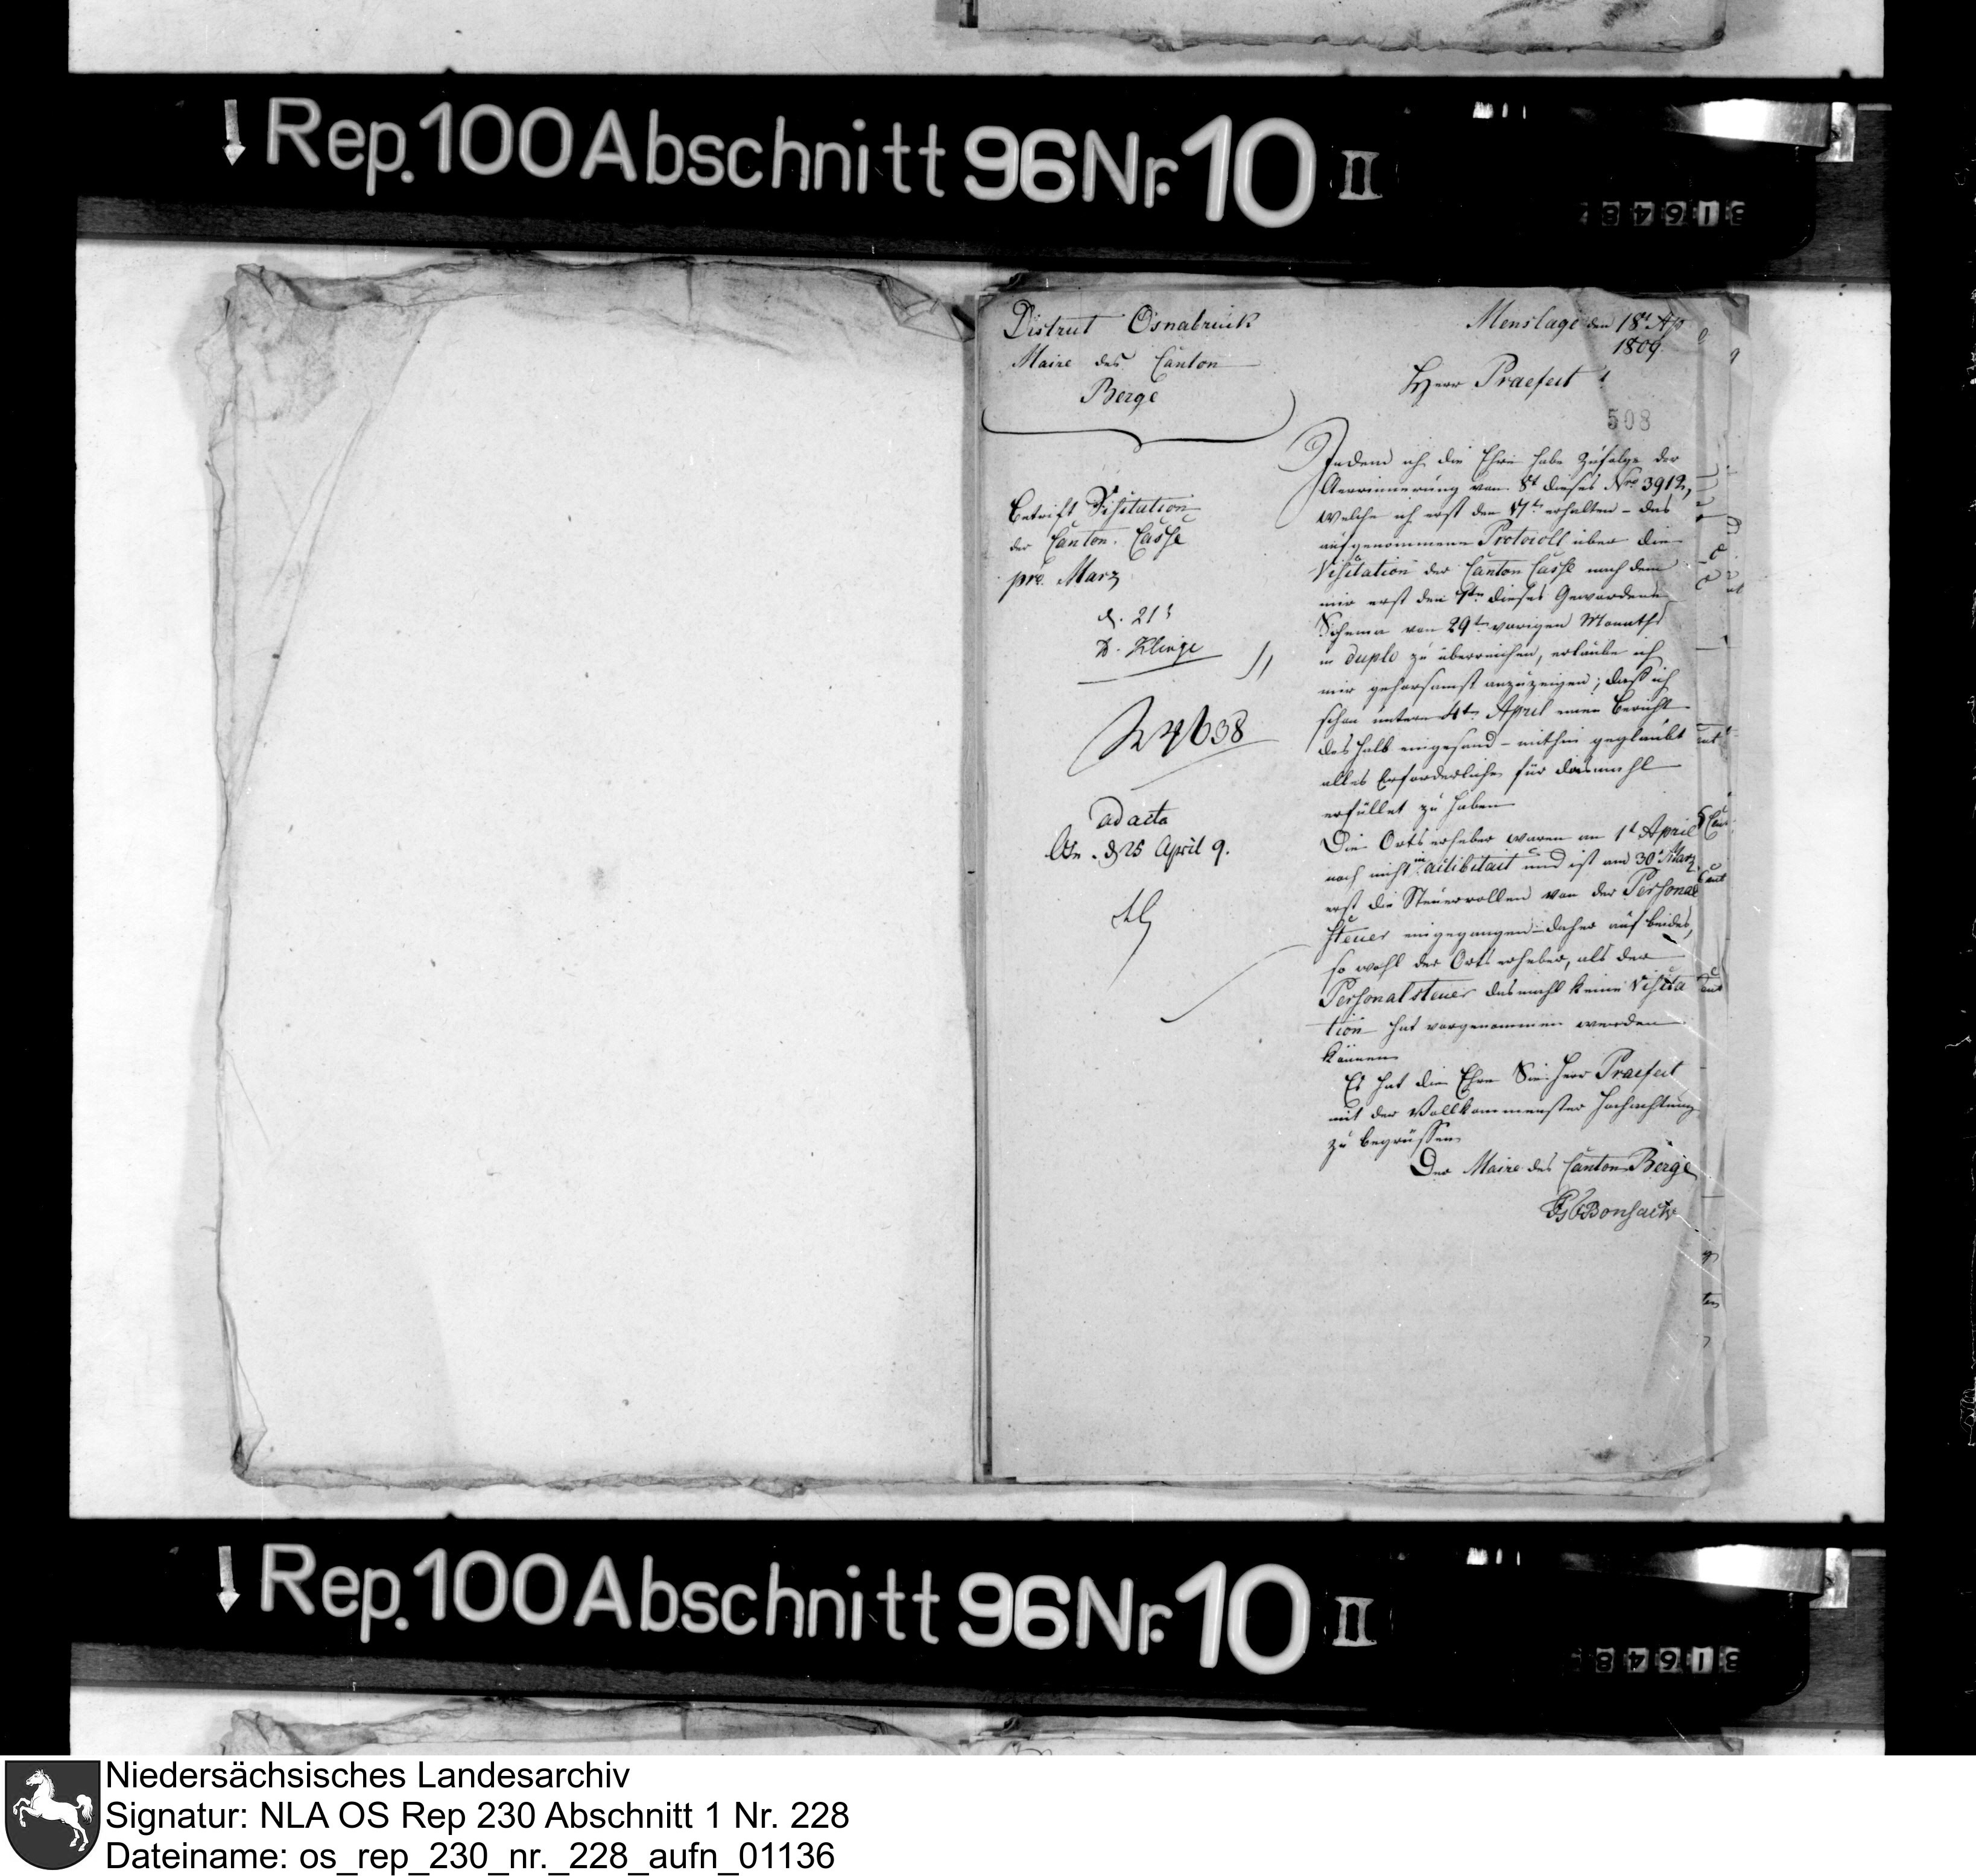 Rep. 100 Abschnitt 96 Nr. 10 II
District Osnabrück
Maire des Canton
Berge
Menslage den 18t Ap
1809
Herr Praefect!
508
Betrift Visitation
der Canton. Casse
pro Marz
d. 21t
D. Klinge
N 4638
ad acta
Osn. d 25 April 9.
Indem ich die Ehre habe zufolge der
Aerrinnerung vom 8t dieses Nro 3912,
welche ich erst den 17ten erhalten - das
aufgenommene Protocoll über die
Visitation der Canton Casse nach dem
mir erst den dieses Gewordene
Schema vom 29ten vorigen Monaths
in duplo zu überreichen, erlaube ich
mir gehorsamst anzuzeigen; daß ich
schon unterm 4ten April einen Bericht
deshalb eingesand - mithin geglaubt
alles Erforderliche für dasmahl
erfüllet zu haben
Die Ortserheber waren am 1t April
noch nicht in activitait und ist am 30t Marz
erst die Steuerrollen von der Personal
steuer eingegangen - daher auf beides,
so wohl der Ortserheber, als der
Personalsteuer dasmahl keine Visita
tion hat vorgenommen werden
können
Es hat die Ehre Sie Herr Praefect
mit der Vollkommensten Hochachtung
zu begrüssen
Der Maire des Canton Berge
Bonsack
Rep. 100 Abschnitt 96 Nr. 10 II
Niedersächsisches Landesarchiv
Signatur: NLA OS Rep 230 Abschnitt 1 Nr. 228
Dateiname: os_rep_230_nr._228_aufn_01136